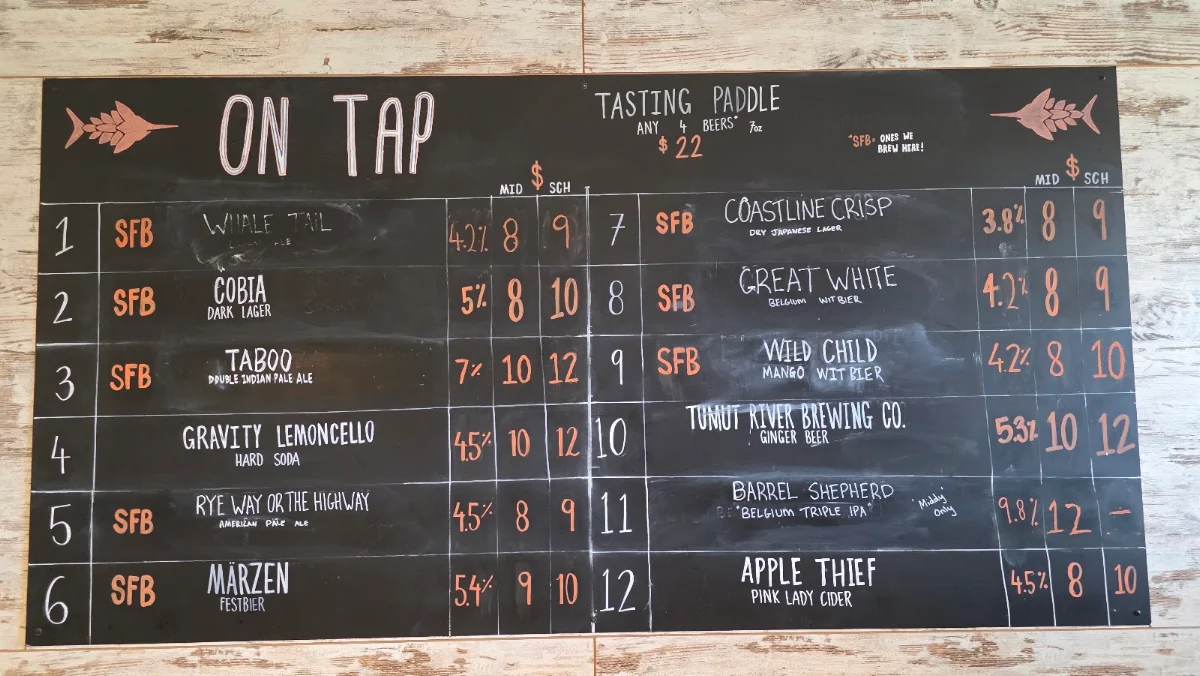 ON TAP
TASTING PADDLE
ANY 4 BEERS* 7oz
$22
*SFB= ONES WE
BREW HERE!
MID $ SCH
1 SFB WHALE TAIL 4.2% 8 9
ALE
2 SFB COBIA 5% 8 10
DARK LAGER
3 SFB TABOO 7% 10 12
DOUBLE INDIAN PALE ALE
4 GRAVITY LEMONCELLO 4.5% 10 12
HARD SODA
5 SFB RYE WAY OR THE HIGHWAY 4.5% 8 9
AMERICAN PALE ALE
6 SFB MÄRZEN 5.4% 9 10
FESTBIER
MID $ SCH
7 SFB COASTLINE CRISP 3.8% 8 9
DRY JAPANESE LAGER
8 SFB GREAT WHITE 4.2% 8 9
BELGIUM WITBIER
9 SFB WILD CHILD 4.2% 8 10
MANGO WITBIER
10 TUMUT RIVER BREWING CO. 5.3% 10 12
GINGER BEER
11 BARREL SHEPHERD 9.8% 12 –
"BELGIUM TRIPLE IPA"
"Middy"
Only
12 APPLE THIEF 4.5% 8 10
PINK LADY CIDER